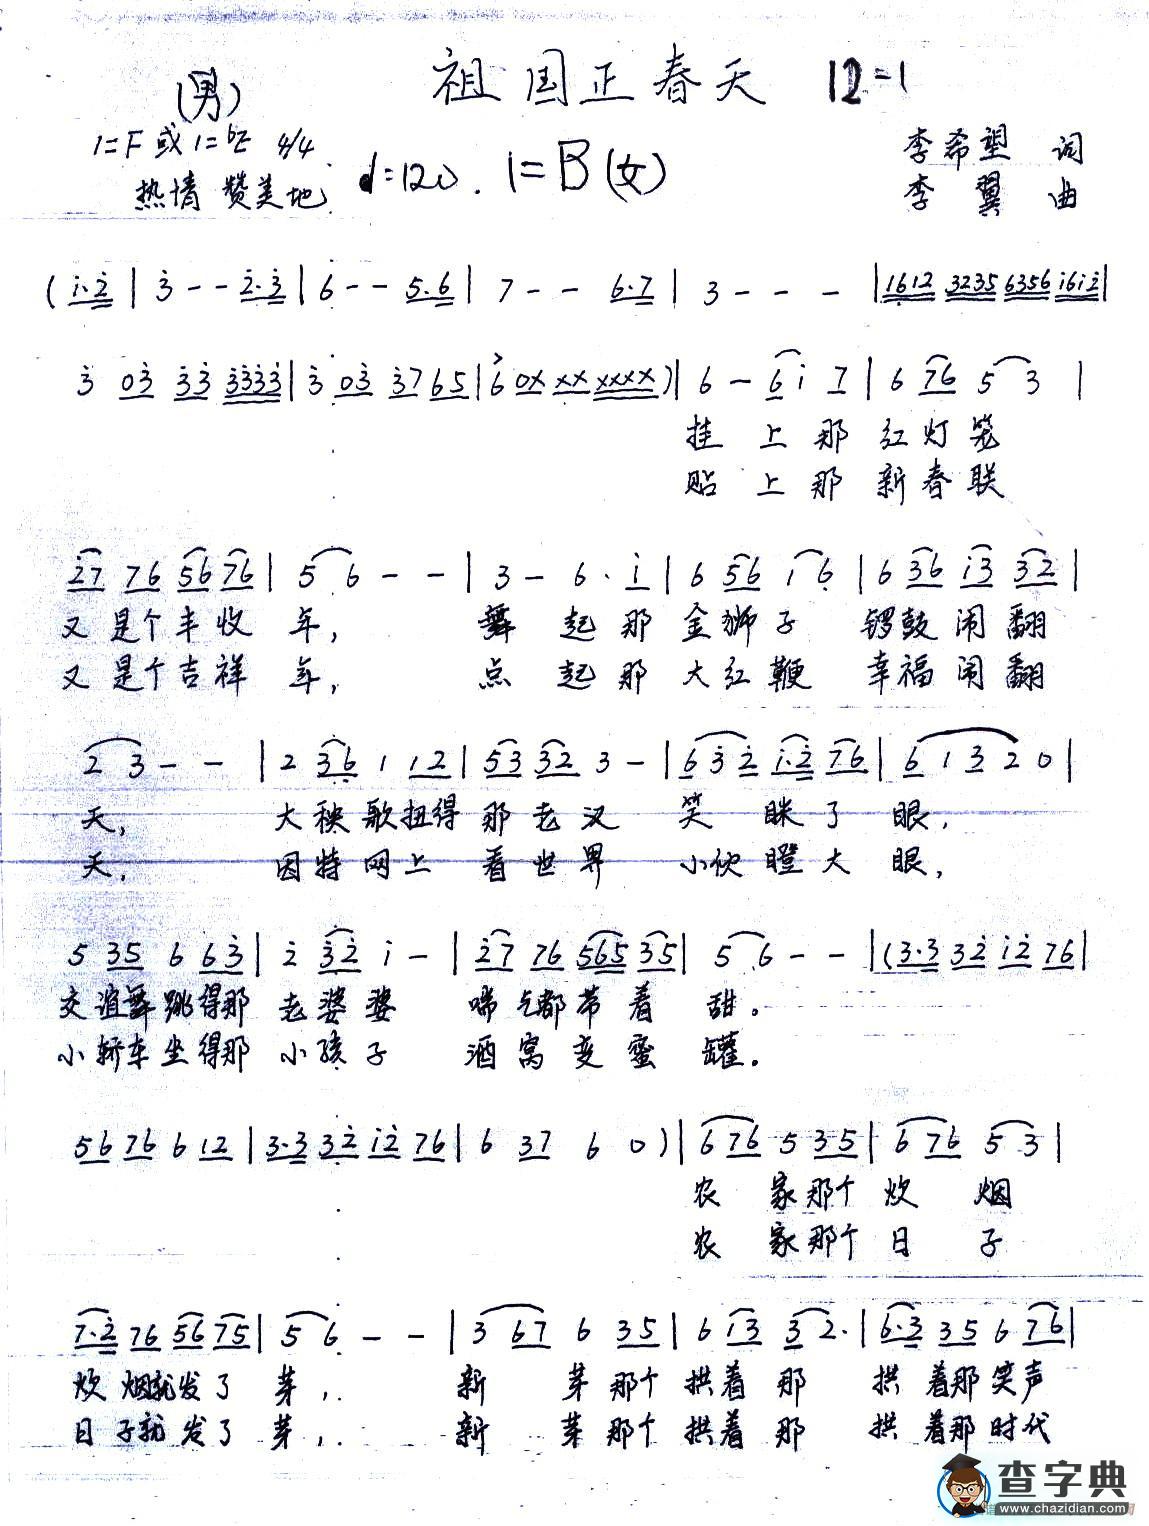 祖国正春天 12-1
(男)
1=F或1=bE 4/4
热情 赞美地 ♩=120. 1=B(女)
李希望 词
李翼 曲
(i·2̇ | 3̇ - - 2̇·3̇ | 6 - - 5·6 | 7 - - 6·7 | 3 - - - | 1612 3235 6356 i6i2̇ |
3̇ 03̇ 3̇3̇ 3̇3̇3̇3̇ | 3̇ 03̇ 3̇7 65 | 6 0x xx xxxx ) | 6 - 6i 7 | 6 76 5 3 |
挂上那红灯笼
贴上那新春联
2̇7 76 56 76 | 5 6 - - | 3 - 6 · i | 6 56 i 6 | 6 36 i3 32 |
又是个丰收年, 舞起那金狮子 锣鼓闹翻
又是个吉祥年, 点起那大红鞭 幸福闹翻
2 3 - - | 2 36 1 12 | 53 32 3 - | 63̇2̇ i·2̇ 76 | 6 1 3 2 0 |
天, 大秧歌扭得那老汉笑眯了眼,
天, 因特网上看世界小伙瞪大眼,
5 35 6 63̇ | 2̇ 3̇2̇ i - | 2̇7 76 565 35 | 5 6 - - | (3·3 32̇ i2̇ 76 |
交谊舞跳得那老婆婆 喘气都带着甜。
小轿车坐得那小孩子 酒窝变蜜罐。
56 76 6 12 | 3·3 32̇ i2̇ 76 | 6 37 6 0 ) | 6 76 5 35 | 6 76 5 3 |
农家那个炊烟
农家那个日子
7·2̇ 76 56 75 | 5 6 - - | 3 67 6 35 | 6 i3 3 2· | 6·3 35 6 76 |
炊烟就发了芽, 新芽那个拱着那 拱着那笑声
日子就发了芽, 新芽那个拱着那 拱着那时代
查字典
www.chazidian.com